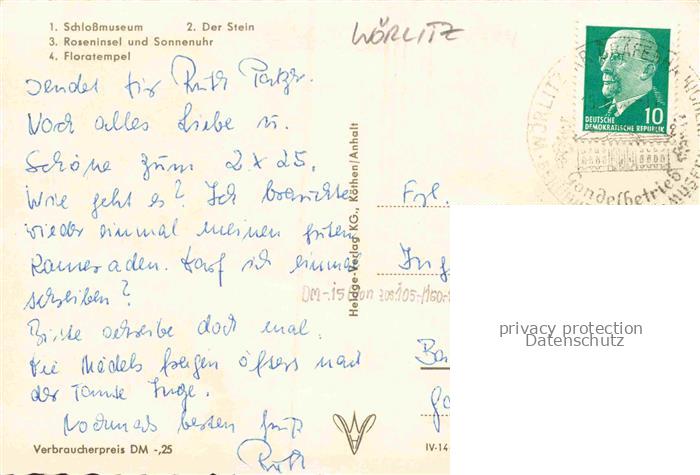 1. Schloßmuseum 2. Der Stein
3. Roseninsel und Sonnenuhr
4. Floratempel
WÖRLITZ
DEUTSCHE
DEMOKRATISCHE REPUBLIK
10
WÖRLITZ
Gondelbetrieb
sendet für Ruth
Noch alles Liebe u.
Schöne zum 2 x 25.
Wie geht es? Ich
wieder einmal meinen guten
Kameraden. Darf ich einmal
schreiben?
Bitte schreibe doch mal.
Die Mädels fragen öfters nach
der Tante Inge.
Nochmals besten Gruß
Ruth
Heldge-Verlag KG., Köthen/Anhalt
Frl.
Ing
privacy protection
Datenschutz
Verbraucherpreis DM -,25
IV-14